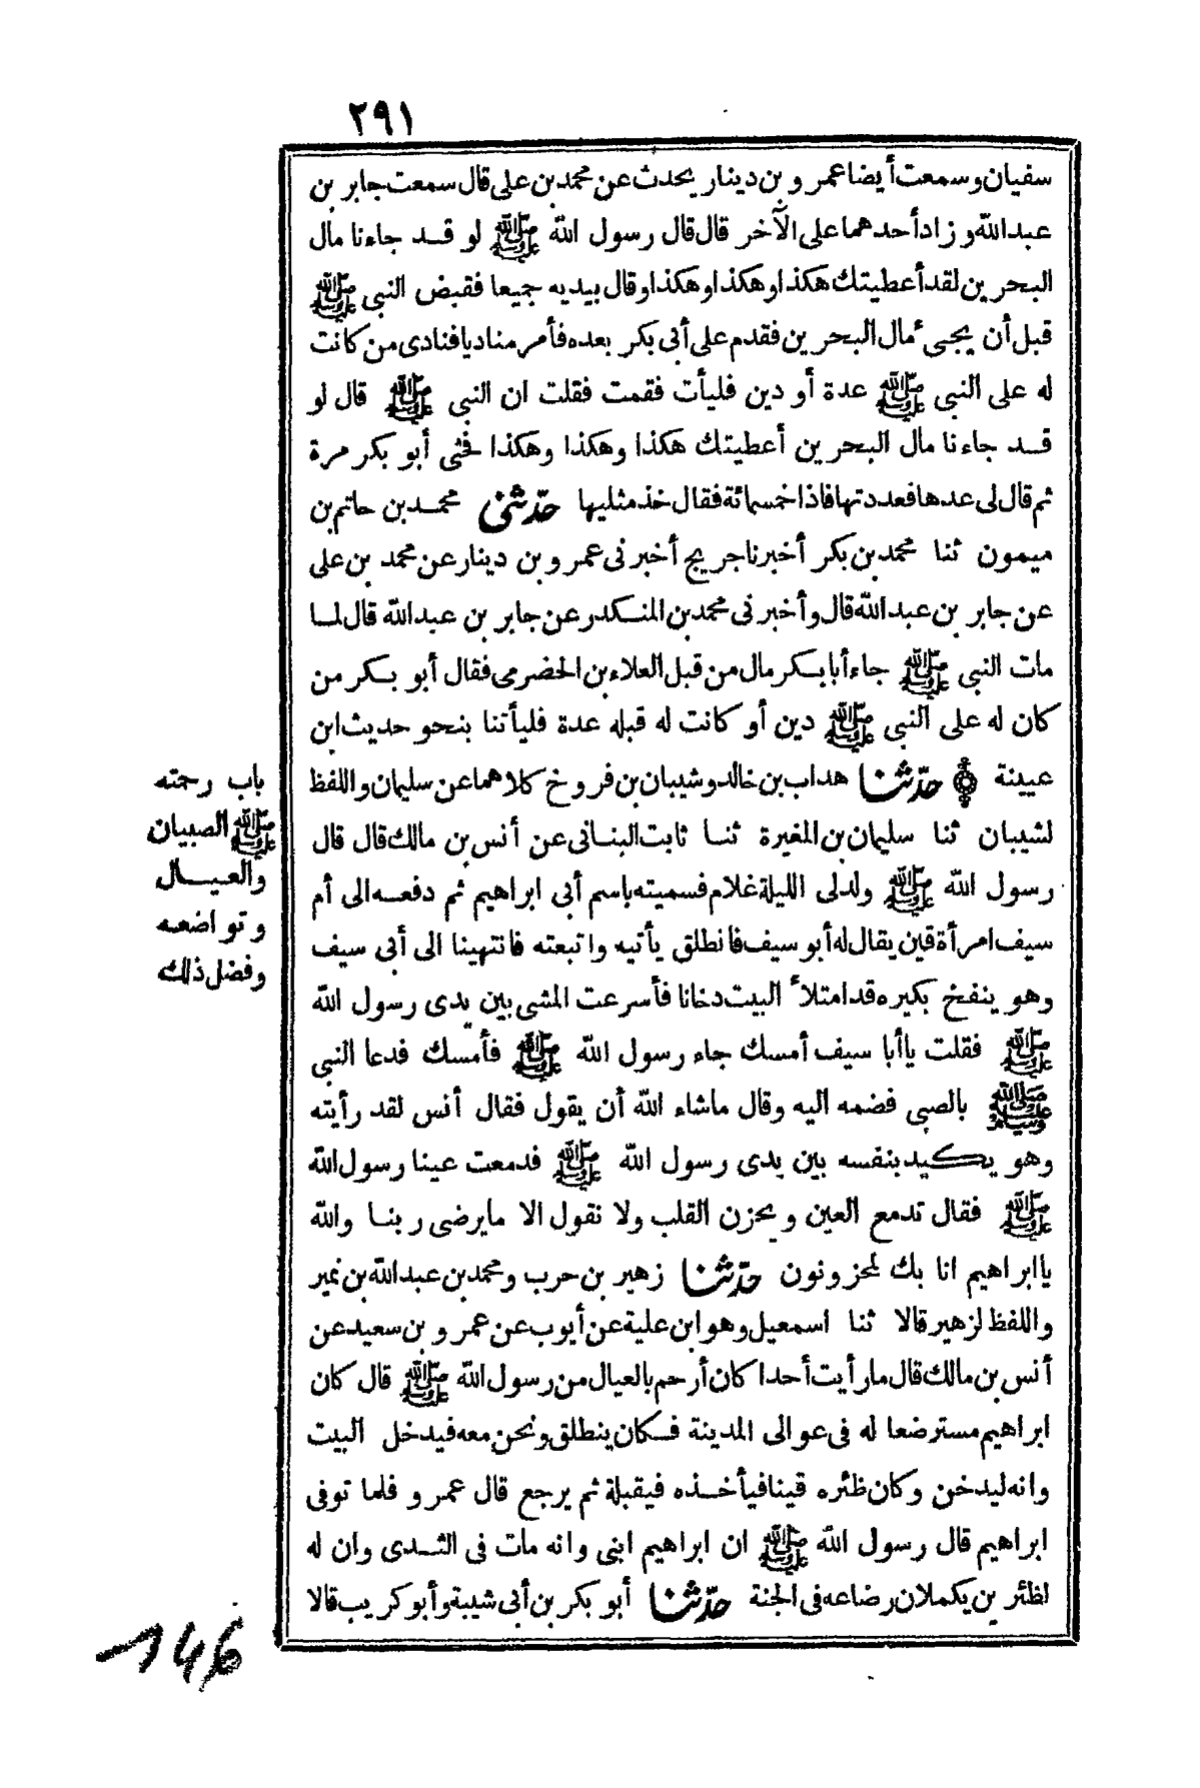 ٢٩١
سفيان وسمعت أيضا عمرو بن دينار يحدث عن محمد بن على قال سمعت جابر بن
عبد الله وزاد أحدهما على الآخر قال قال رسول الله ﷺ لو قد جاءنا مال
البحرين لقد أعطيتك هكذا وهكذا وهكذا وقال بيديه جميعا فقبض النبى ﷺ
قبل أن يجىء مال البحرين فقدم على أبى بكر بعده فأمر مناديا فنادى من كانت
له على النبى ﷺ عدة أو دين فليأت فقمت فقلت ان النبى ﷺ قال لو
قد جاءنا مال البحرين أعطيتك هكذا وهكذا وهكذا فحثى أبو بكر مرة
ثم قال لى عدها فعددتها فاذا خمسمائة فقال خذ مثليها حدّثنى محمد بن حاتم بن
ميمون ثنا محمد بن بكر أخبرنا جريج أخبرنى عمرو بن دينار عن محمد بن على
عن جابر بن عبد الله قال وأخبرنى محمد بن المنكدر عن جابر بن عبد الله قال لما
مات النبى ﷺ جاء أبا بكر مال من قبل العلاء بن الحضرمى فقال أبو بكر من
كان له على النبى ﷺ دين أو كانت له قبله عدة فليأتنا بنحو حديث ابن
عيينة حدّثنا هداب بن خالد وشيبان بن فروخ كلاهما عن سليمان واللفظ
لشيبان ثنا سليمان بن المغيرة ثنا ثابت البنانى عن أنس بن مالك قال قال
رسول الله ﷺ ولد لى الليلة غلام فسميته باسم أبى ابراهيم ثم دفعه الى أم
سيف امرأة قين يقال له أبو سيف فانطلق يأتيه واتبعته فانتهينا الى أبى سيف
وهو ينفخ بكيره قد امتلأ البيت دخانا فأسرعت المشى بين يدى رسول الله
ﷺ فقلت يا أبا سيف أمسك جاء رسول الله ﷺ فأمسك فدعا النبى
ﷺ بالصبى فضمه اليه وقال ماشاء الله أن يقول فقال أنس لقد رأيته
وهو يكيد بنفسه بين يدى رسول الله ﷺ فدمعت عينا رسول الله
ﷺ فقال تدمع العين ويحزن القلب ولا نقول الا مايرضى ربنا والله
يا ابراهيم انا بك لمحزونون حدّثنا زهير بن حرب ومحمد بن عبد الله بن نمير
واللفظ لزهير قالا ثنا اسمعيل وهو ابن علية عن أيوب عن عمرو بن سعيد عن
أنس بن مالك قال مارأيت أحدا كان أرحم بالعيال من رسول الله ﷺ قال كان
ابراهيم مسترضعا له فى عوالى المدينة فكان ينطلق ونحن معه فيدخل البيت
وانه ليدخن وكان ظئره قينا فيأخذه فيقبلة ثم يرجع قال عمرو فلما توفى
ابراهيم قال رسول الله ﷺ ان ابراهيم ابنى وانه مات فى الثدى وان له
لظئرين يكملان رضاعه فى الجنة حدّثنا أبو بكر بن أبى شيبة وأبو كريب قالا
باب رحمته
ﷺ الصبيان
والعيال
وتواضعه
وفضل ذلك
146